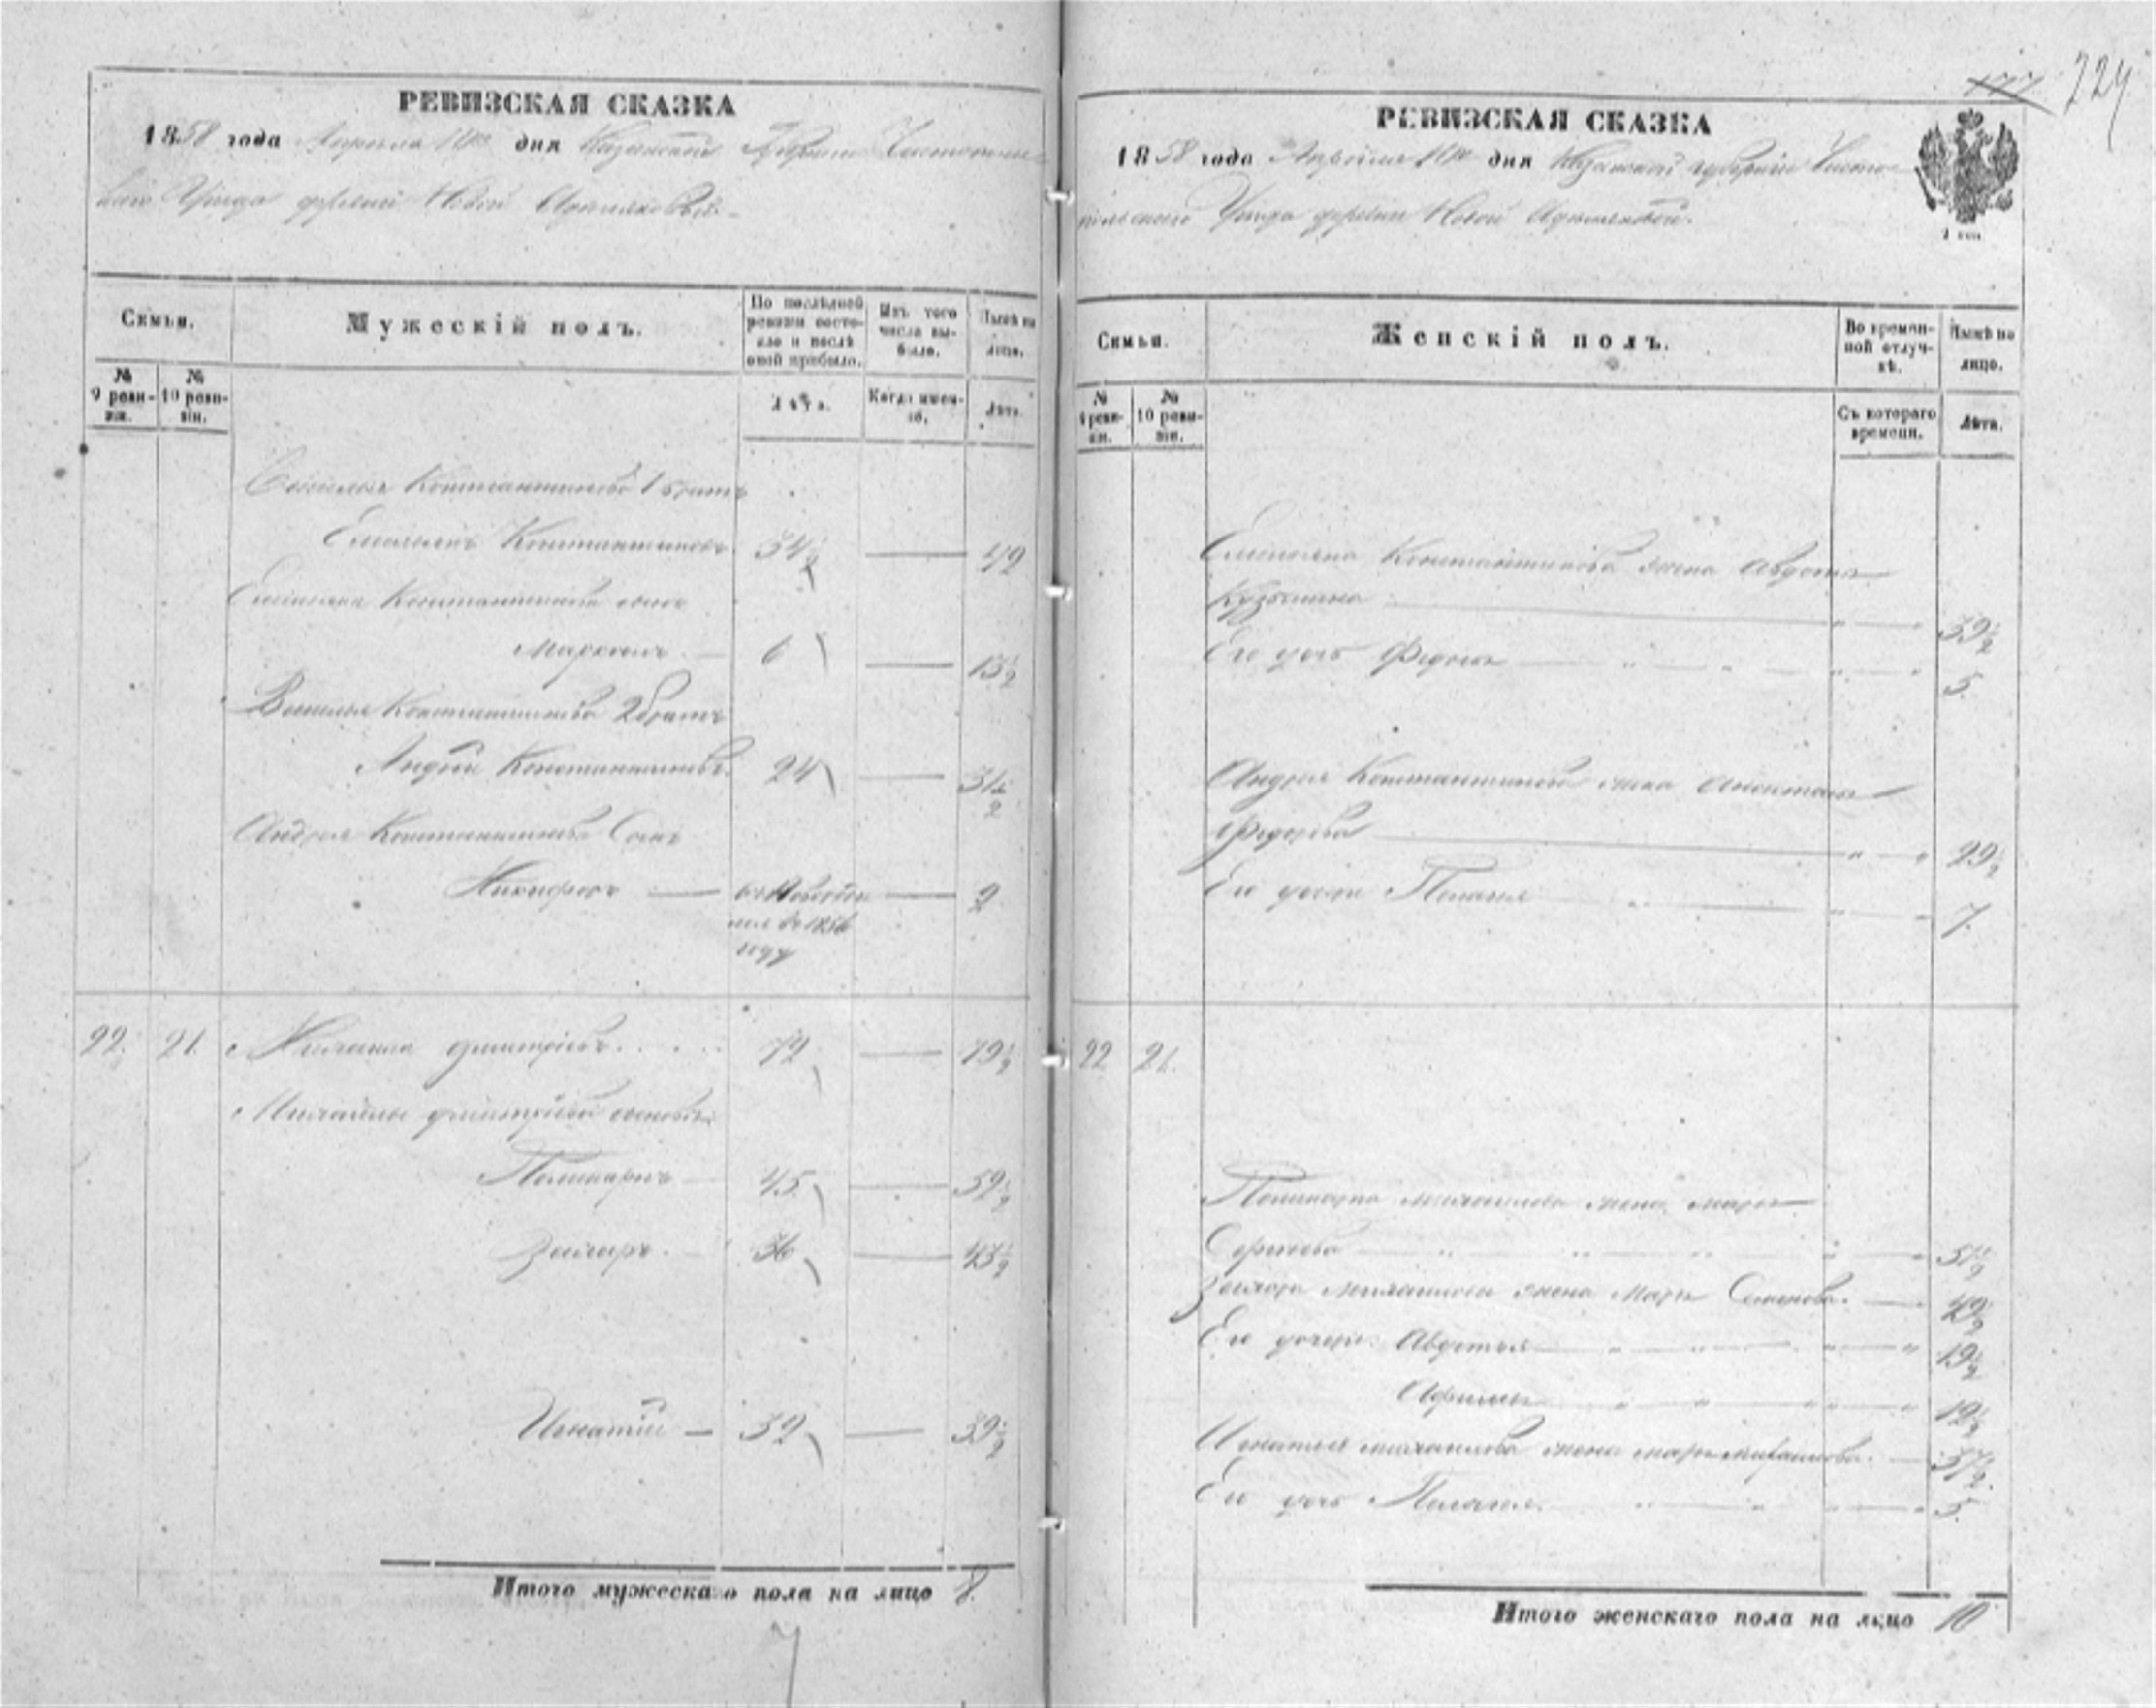 РЕВИЗСКАЯ СКАЗКА
1858 года Апреля дня Казанской Губернии
Уезда деревни Новой
Семьи.
Мужескій полъ.
По послѣдней ревизіи состояло и послѣ оной прибыло.
Изъ того числа выбыло.
Нынѣ на лицо.
№ 9 ревизіи.
№ 10 ревизіи.
Лѣта.
Когда именно.
Лѣта.
Василья Константинова 1 братъ
Емельянъ Константиновъ 34½ — 42
Емельяна Константинова сынъ
6 — 13½
Василья Константинова 2 братъ
Андрей Константиновъ. 24 — 31½
Андрея Константинова Сынъ
Никифоръ — — 2
въ 1856
году
22. 21. Михаила Дмитріевъ. 72 — 79½
Михайлы Дмитріева сыновья
Поликарпъ — 45 — 52½
Захаръ. — 36 — 43½
Игнатій — 32 — 39½
Итого мужескаго пола на лицо 8.
7
177 224
РЕВИЗСКАЯ СКАЗКА
1858 года Апреля дня Казанской губерніи Чисто-
польскаго Уезда деревни Новой
Семьи.
Женскій полъ.
Во временной отлучкѣ.
Нынѣ на лицо.
№ 9 ревизіи.
№ 10 ревизіи.
Съ котораго времени.
Лѣта.
Емельяна Константинова жена Авдотья
Кузьмина — 39½
Его дочь Федосья — 5.
Андрея Константинова жена
Федорова — 29½
Его дочь Пелагея — 7.
22 21.
Поликарпа Михайлова жена Марья
Сергеева — 51½
Захара Михайлова жена Марья Семенова. — 42½
Его дочери: Авдотья — 19½
12½
Игнатья Михайлова жена Марья Михайлова. — 37½.
Его дочь Пелагея. — 5.
Итого женскаго пола на лицо 10